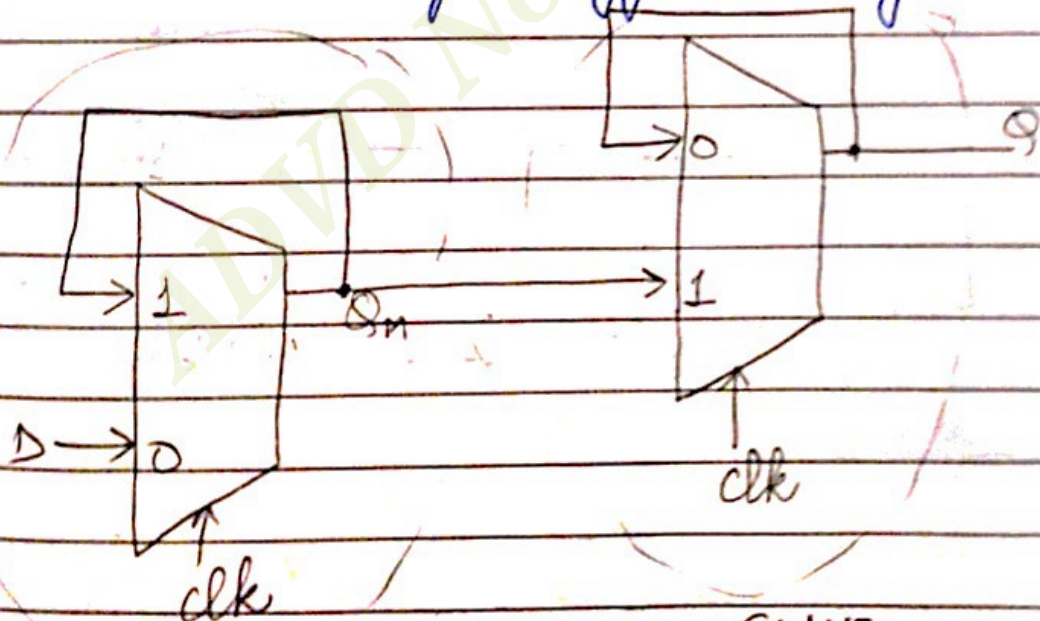 ADVD No
0
Q
1
QM
1
D
0
clk
clk